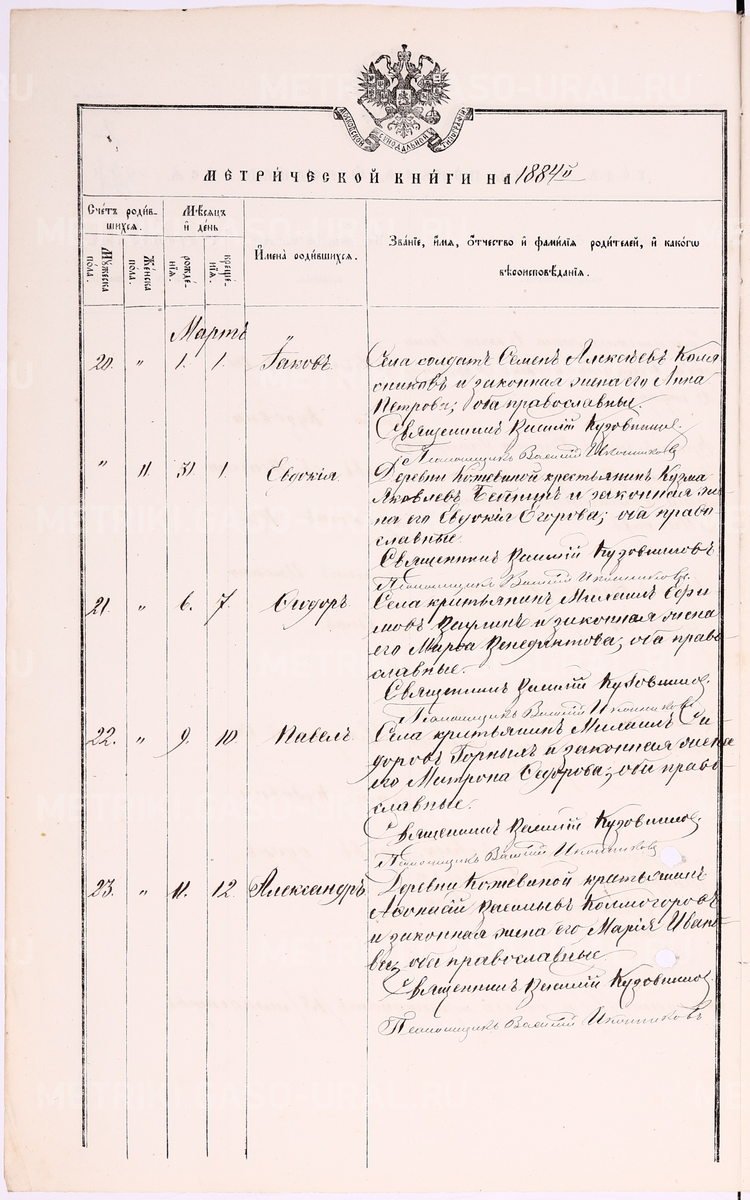 МОСКОВСКОЙ СѴНОДАЛЬНОЙ ТИПОГРАФІИ
МЕТРИЧЕСКОЙ КНИГИ НА 1884й
Счетъ родив-
шихся.
Мѣсяцъ
и день
Имена родившихся.
Званіе, имя, отчество и фамилія родителей, и какогѡ
вѣроисповѣданія.
Мужеска
пола.
Женска
пола.
рожде-
нія.
креще-
нія.
Мартъ
20. " 1. 1. Іаковъ
Села солдатъ Семенъ Алексѣевъ Коля
сниковъ и законная жена его Анна
Петрова; оба православные.
Священникъ Василій Кузовниковъ.
Псаломщикъ Василій Иконниковъ
" 11. 31. 1. Евдокія
Деревни Кожевиной крестьянинъ Кузма
Яковлевъ и законная же
на его Евдокія Егорова; оба право
славные.
Священникъ Василій Кузовниковъ
Псаломщикъ Василій Иконниковъ.
21. " 6. 7. Ѳеодоръ
Села крестьянинъ Михаилъ Ефи
мовъ и законная жена
его Марѳа Венедиктова; оба право
славные.
Священникъ Василій Кузовниковъ.
Псаломщикъ Василій Иконниковъ
22. " 9. 10 Павелъ
Села крестьянинъ Михаилъ Си
доровъ Горныхъ и законная жена
его Матрона Ѳедорова; оба право
славные.
Священникъ Василій Кузовниковъ.
Псаломщикъ Василій Иконниковъ
23. " 11. 12. Александръ
Деревни Кожевиной крестьянинъ
Аѳонасій Васильевъ Колмогоровъ
и законная жена его Марія Ивано
ва; оба православные.
Священникъ Василій Кузовниковъ.
Псаломщикъ Василій Иконниковъ